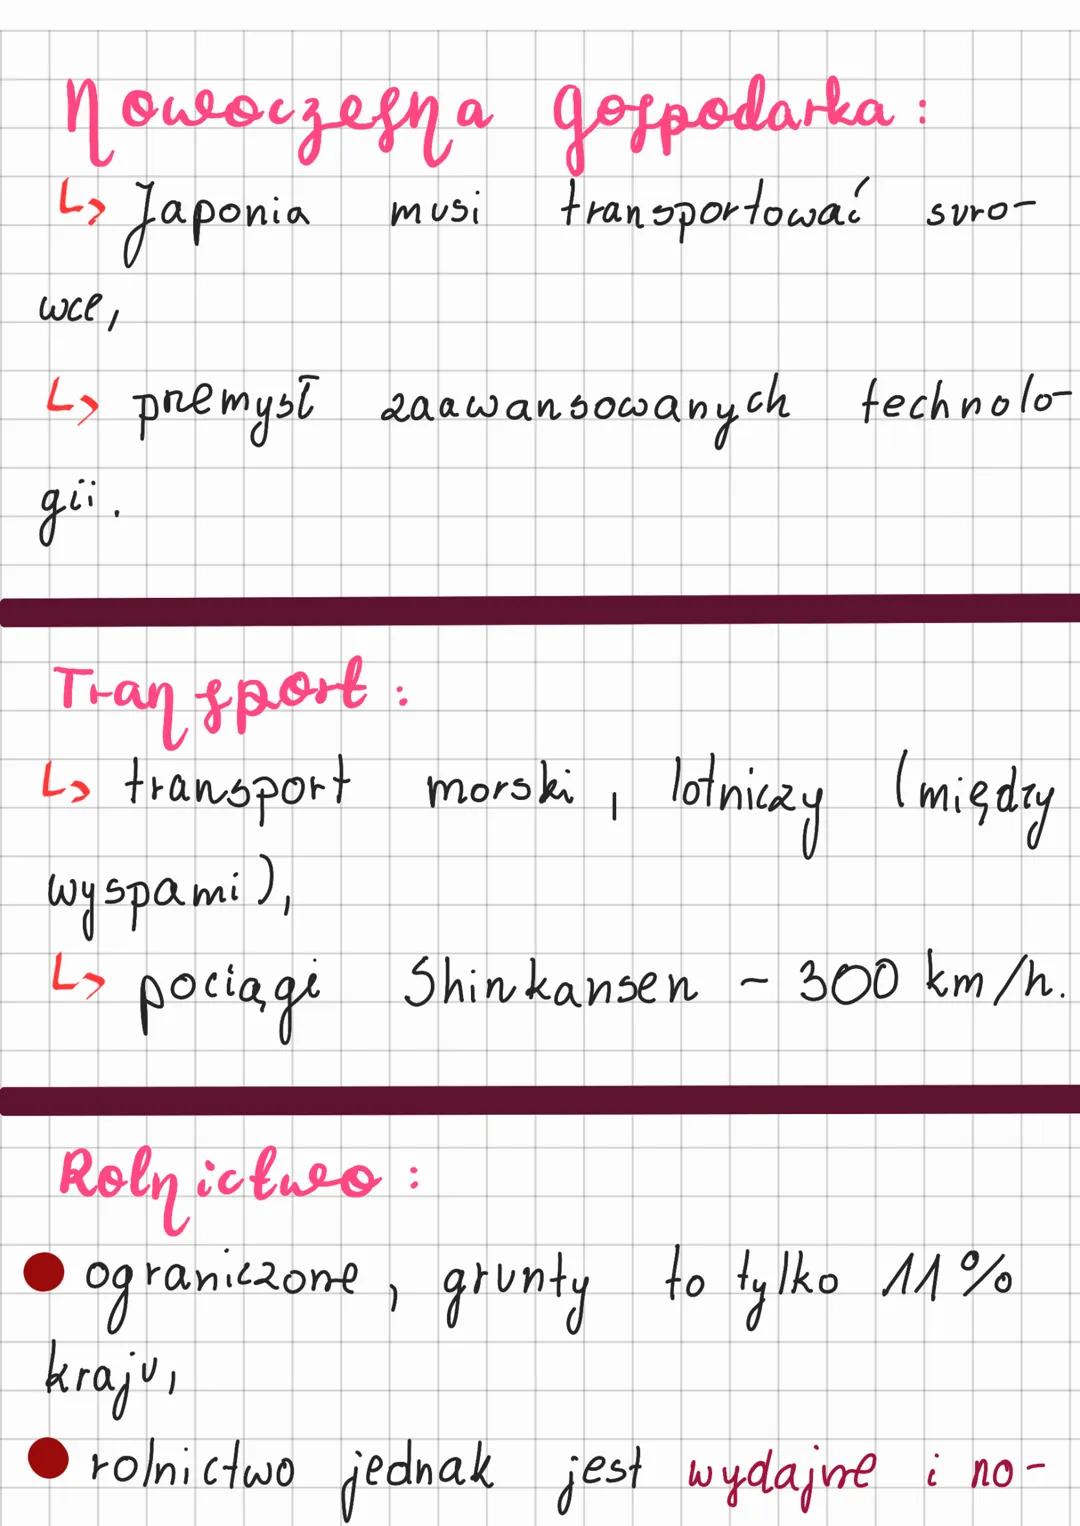 Nowoczesna gospodarka:
↳ Japonia musi transportować suro-
wce,
↳ przemysł zaawansowanych technolo-
gii.
Transport:
↳ transport morski, lotniczy (między
wyspami),
↳ pociągi Shinkansen ~ 300 km/h.
Rolnictwo:
● ograniczone, grunty to tylko 11%
kraju,
● rolnictwo jednak jest wydajne i no-